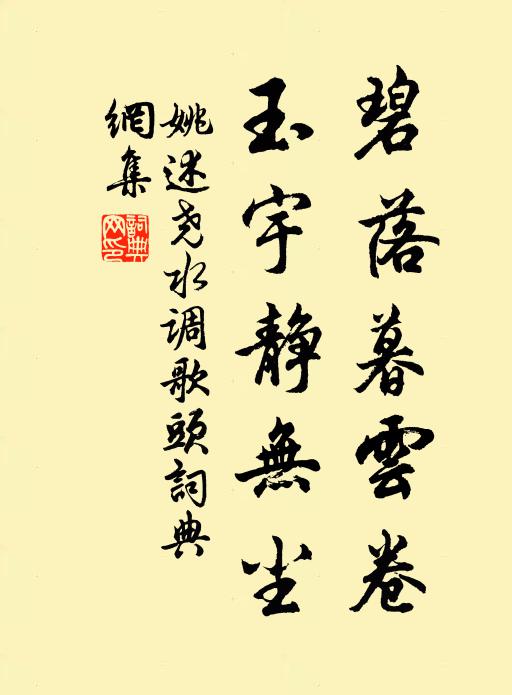 碧落暮雲卷
玉宇静無尘
姚述尧水调歌頭詞典
網集
詞典
网印